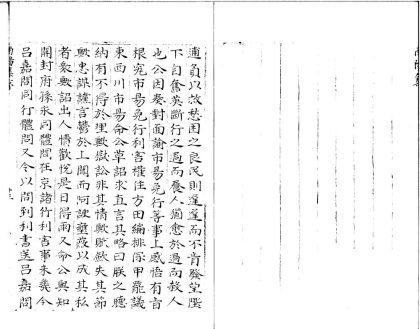 逋負以救愁困之良民則遲遲而不肯發望陛
下自奮英斷行之過而養人猶愈於過而殺人
也公因奏對面諭市易免行等事上感悟有旨
根究市易免行利害權住方田編排保甲罷議
東西川市易命公草詔求直言其略曰朕之聽
納有不得於理歟獄訟非其情歟賦歛失其節
歟忠謀讜言鬱於上聞而阿諛壅蔽以成其私
者衆歟詔出人情歡悅是日得雨又命公與知
開封府孫永同體問在京諸行利害事未幾今
呂嘉問同行體問又令以問到利書送呂嘉問